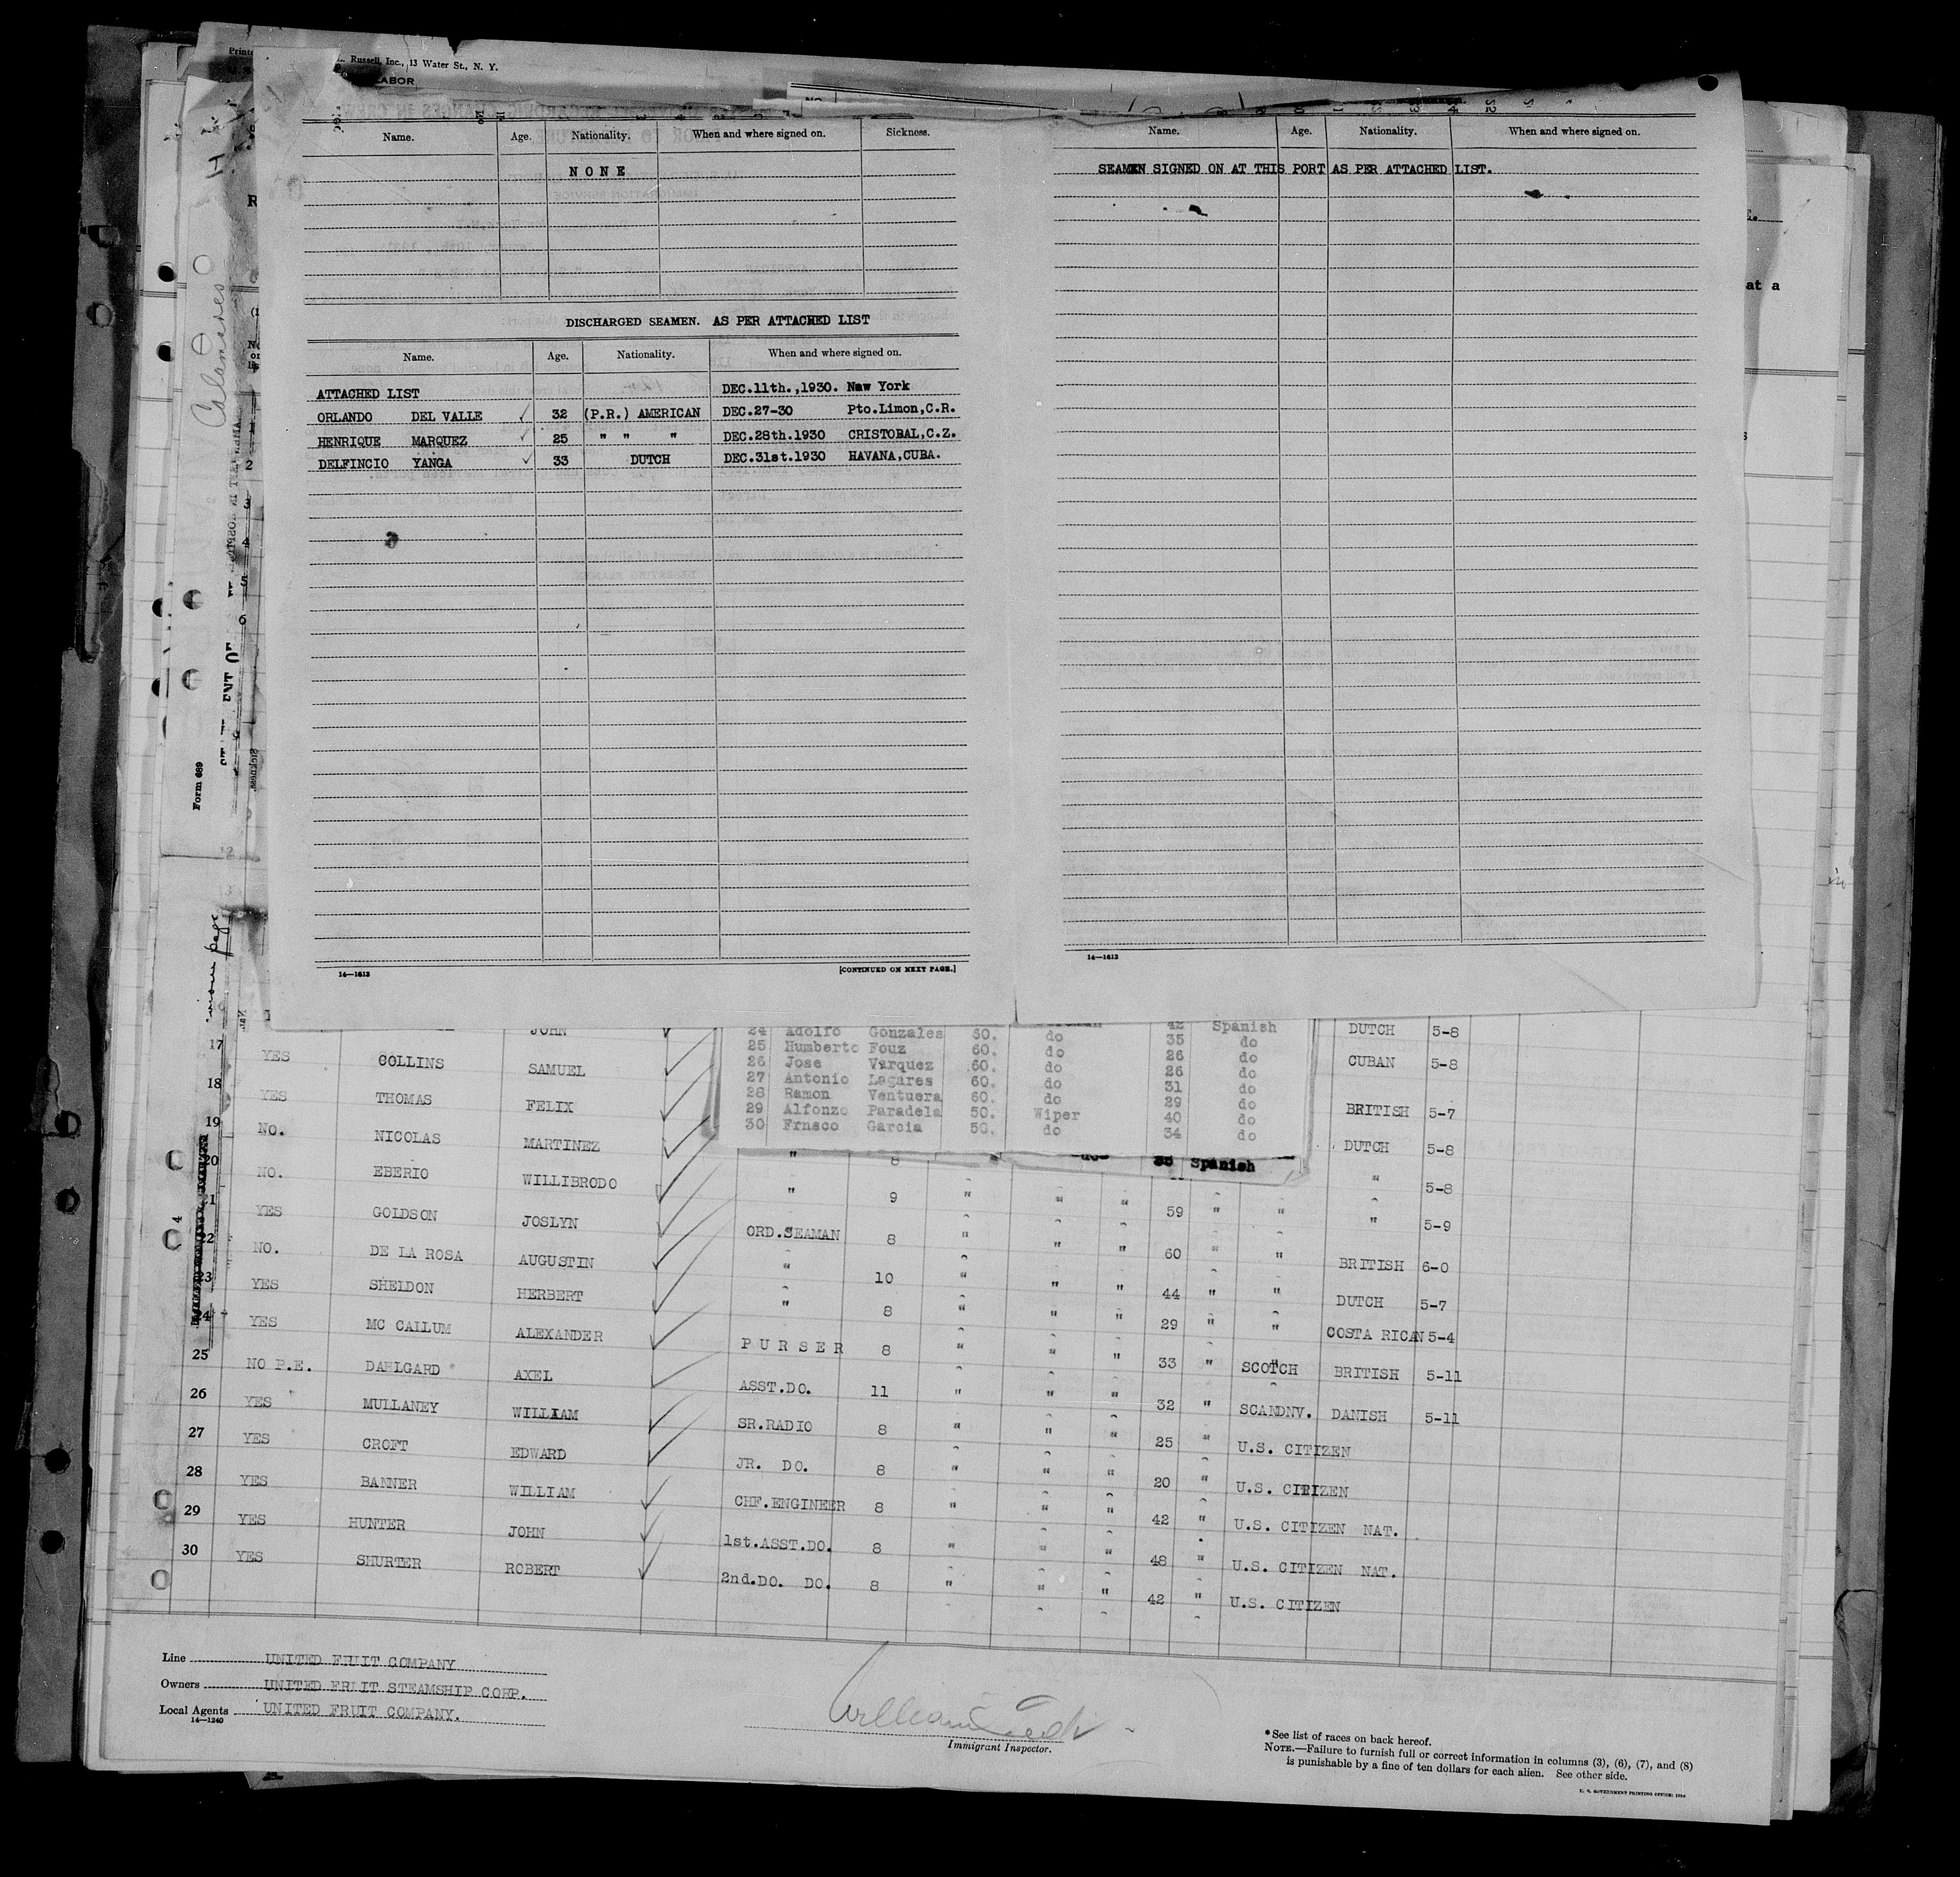 Russell, Inc., 13 Water St., N. Y.
LABOR
Name. Age. Nationality. When and where signed on. Sickness.
NONE
DISCHARGED SEAMEN. AS PER ATTACHED LIST
Name. Age. Nationality. When and where signed on.
ATTACHED LIST DEC.11th.,1930. New York
ORLANDO DEL VALLE 32 (P.R.) AMERICAN DEC.27-30 Pto.Limon,C.R.
HENRIQUE MARQUEZ 25 " " " DEC.28th.1930 CRISTOBAL,C.Z.
DELFINCIO YANGA 33 DUTCH DEC.31st.1930 HAVANA,CUBA.
14—1613 [CONTINUED ON NEXT PAGE.]
Name. Age. Nationality. When and where signed on.
SEAMEN SIGNED ON AT THIS PORT AS PER ATTACHED LIST.
14—1613
at a
Calamares
Form 689
2
3
4
5
6
page
JOHN DUTCH 5-8
17 YES COLLINS SAMUEL CUBAN 5-8
18 YES THOMAS FELIX BRITISH 5-7
19 NO. NICOLAS MARTINEZ DUTCH 5-8
20 NO. EBERIO WILLIBRODO " 8 35 Spanish " 5-8
1 YES GOLDSON JOSLYN " 9 " " " 59 " " " 5-9
22 NO. DE LA ROSA AUGUSTIN ORD.SEAMAN 8 " " " 60 " " BRITISH 6-0
23 YES SHELDON HERBERT " 10 " " " 44 " " DUTCH 5-7
4 YES MC CALLUM ALEXANDER " 8 " " " 29 " " COSTA RICAN 5-4
25 NO P.E. DAHLGARD AXEL PURSER 8 " " " 33 " SCOTCH BRITISH 5-11
26 YES MULLANEY WILLIAM ASST.DO. 11 " " " 32 " SCANDNV. DANISH 5-11
27 YES CROFT EDWARD SR.RADIO 8 " " " 25 " U.S. CITIZEN
28 YES BANNER WILLIAM JR. DO. 8 " " " 20 " U.S. CITIZEN
29 YES HUNTER JOHN CHF.ENGINEER 8 " " " 42 " U.S. CITIZEN NAT.
30 YES SHURTER ROBERT 1st.ASST.DO. 8 " " " 48 " U.S. CITIZEN NAT.
2nd.DO. DO. 8 " " " 42 " U.S. CITIZEN
24 Adolfo Gonzales 60. 42 Spanish
25 Humberto Fouz 60. do 35 do
26 Jose Varquez 60. do 26 do
27 Antonio Lagares 60. do 26 do
28 Ramon Ventuera 60. do 31 do
29 Alfonzo Paradela 50. Wiper 29 do
30 Frnsco Garcia 50. do 40 do
34 do
Line UNITED FRUIT COMPANY
Owners UNITED FRUIT STEAMSHIP CORP.
Local Agents UNITED FRUIT COMPANY.
14—1240
Immigrant Inspector.
* See list of races on back hereof.
NOTE.—Failure to furnish full or correct information in columns (3), (6), (7), and (8)
is punishable by a fine of ten dollars for each alien. See other side.